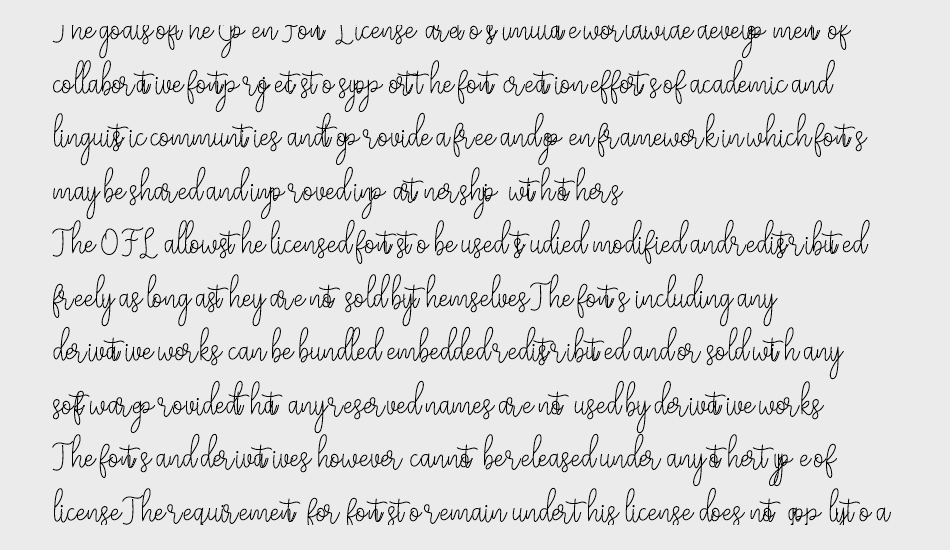 The goals of the Open Font License are to stimulate worldwide development of
collaborative font projects to support the font creation efforts of academic and
linguistic communities and to provide a free and open framework in which fonts
may be shared and improved in partnership with others
The OFL allows the licensed fonts to be used studied modified and redistributed
freely as long as they are not sold by themselves The fonts including any
derivative works can be bundled embedded redistributed and or sold with any
software provided that any reserved names are not used by derivative works
The fonts and derivatives however cannot be released under any other type of
license The requirement for fonts to remain under this license does not apply to a